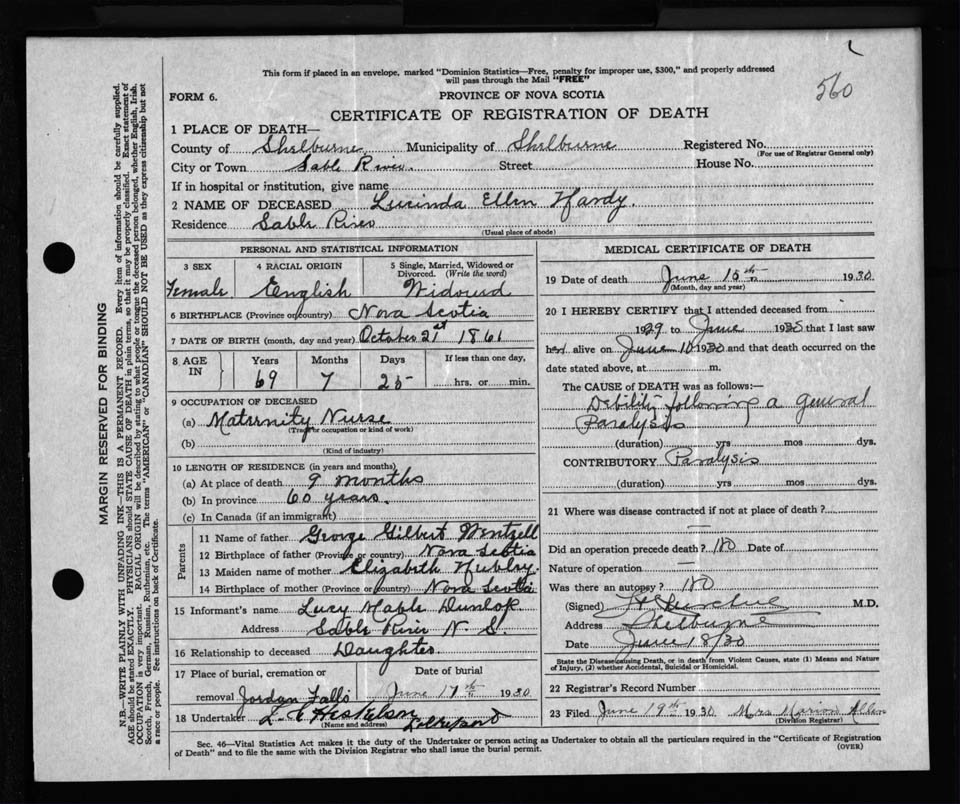 560
This form if placed in an envelope, marked "Dominion Statistics—Free, penalty for improper use, $300," and properly addressed
will pass through the Mail "FREE"
FORM 6.
PROVINCE OF NOVA SCOTIA
CERTIFICATE OF REGISTRATION OF DEATH
1 PLACE OF DEATH—
County of Shelburne Municipality of Shelburne Registered No.
(For use of Registrar General only)
City or Town Sable River Street House No.
If in hospital or institution, give name
2 NAME OF DECEASED Lucinda Ellen Hardy.
Residence Sable River
(Usual place of abode)
PERSONAL AND STATISTICAL INFORMATION
3 SEX 4 RACIAL ORIGIN 5 Single, Married, Widowed or
Divorced. (Write the word)
Female English Widowed
6 BIRTHPLACE (Province or country) Nova Scotia
7 DATE OF BIRTH (month, day and year) October 21st 1861
8 AGE IN Years Months Days If less than one day,
69 7 25 hrs. or min.
9 OCCUPATION OF DECEASED
(a) Maternity Nurse
(Trade or occupation or kind of work)
(b)
(Kind of industry)
10 LENGTH OF RESIDENCE (in years and months)
(a) At place of death 9 months
(b) In province 60 years.
(c) In Canada (if an immigrant)
Parents
11 Name of father George Gilbert Wentzell
12 Birthplace of father (Province or country) Nova Scotia
13 Maiden name of mother Elizabeth Hubley
14 Birthplace of mother (Province or country) Nova Scotia
15 Informant's name Lucy Mable Dunlop
Address Sable River N. S.
16 Relationship to deceased Daughter
17 Place of burial, cremation or Date of burial
removal Jordan Falls June 17th 1930
18 Undertaker
(Name and address)
MEDICAL CERTIFICATE OF DEATH
19 Date of death June 15th 1930
(Month, day and year)
20 I HEREBY CERTIFY that I attended deceased from
1929 to June 1930 that I last saw
her alive on June 10 1930 and that death occurred on the
date stated above, at m.
The CAUSE of DEATH was as follows:—
Debility following a general
Paralysis
(duration) yrs mos dys.
CONTRIBUTORY Paralysis
(duration) yrs mos dys.
21 Where was disease contracted if not at place of death?
Did an operation precede death? No Date of
Nature of operation —
Was there an autopsy? No
(Signed) M.D.
Address Shelburne
Date June 18/30
State the Disease causing Death, or in death from Violent Causes, state (1) Means and Nature
of Injury, (2) whether Accidental, Suicidal or Homicidal.
22 Registrar's Record Number
23 Filed June 19th 1930 Mrs Marion Allen
(Division Registrar)
Sec. 46—Vital Statistics Act makes it the duty of the Undertaker or person acting as Undertaker to obtain all the particulars required in the "Certificate of Registration
of Death" and to file the same with the Division Registrar who shall issue the burial permit.
(OVER)
MARGIN RESERVED FOR BINDING
N.B.—WRITE PLAINLY WITH UNFADING INK—THIS IS A PERMANENT RECORD. Every item of information should be carefully supplied.
AGE should be stated EXACTLY. PHYSICIANS should STATE CAUSE OF DEATH in plain terms, so that it may be properly classified. Exact statement of
OCCUPATION is very important. RACIAL ORIGIN will be described by stating to what people or tongue the deceased person belonged, whether English, Irish,
Scotch, French, German, Russian, Ruthenian, etc. The terms "AMERICAN" or "CANADIAN" SHOULD NOT BE USED as they express citizenship but not
a race or people. See instructions on back of Certificate.